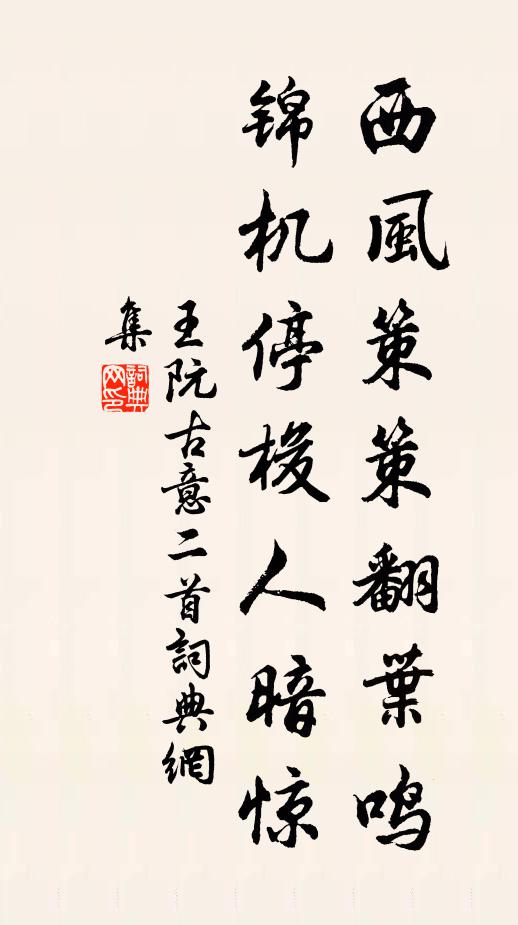 西風策策翻葉鳴
锦机停梭人暗惊
王阮古意二首詞典網
集
詞典
网印